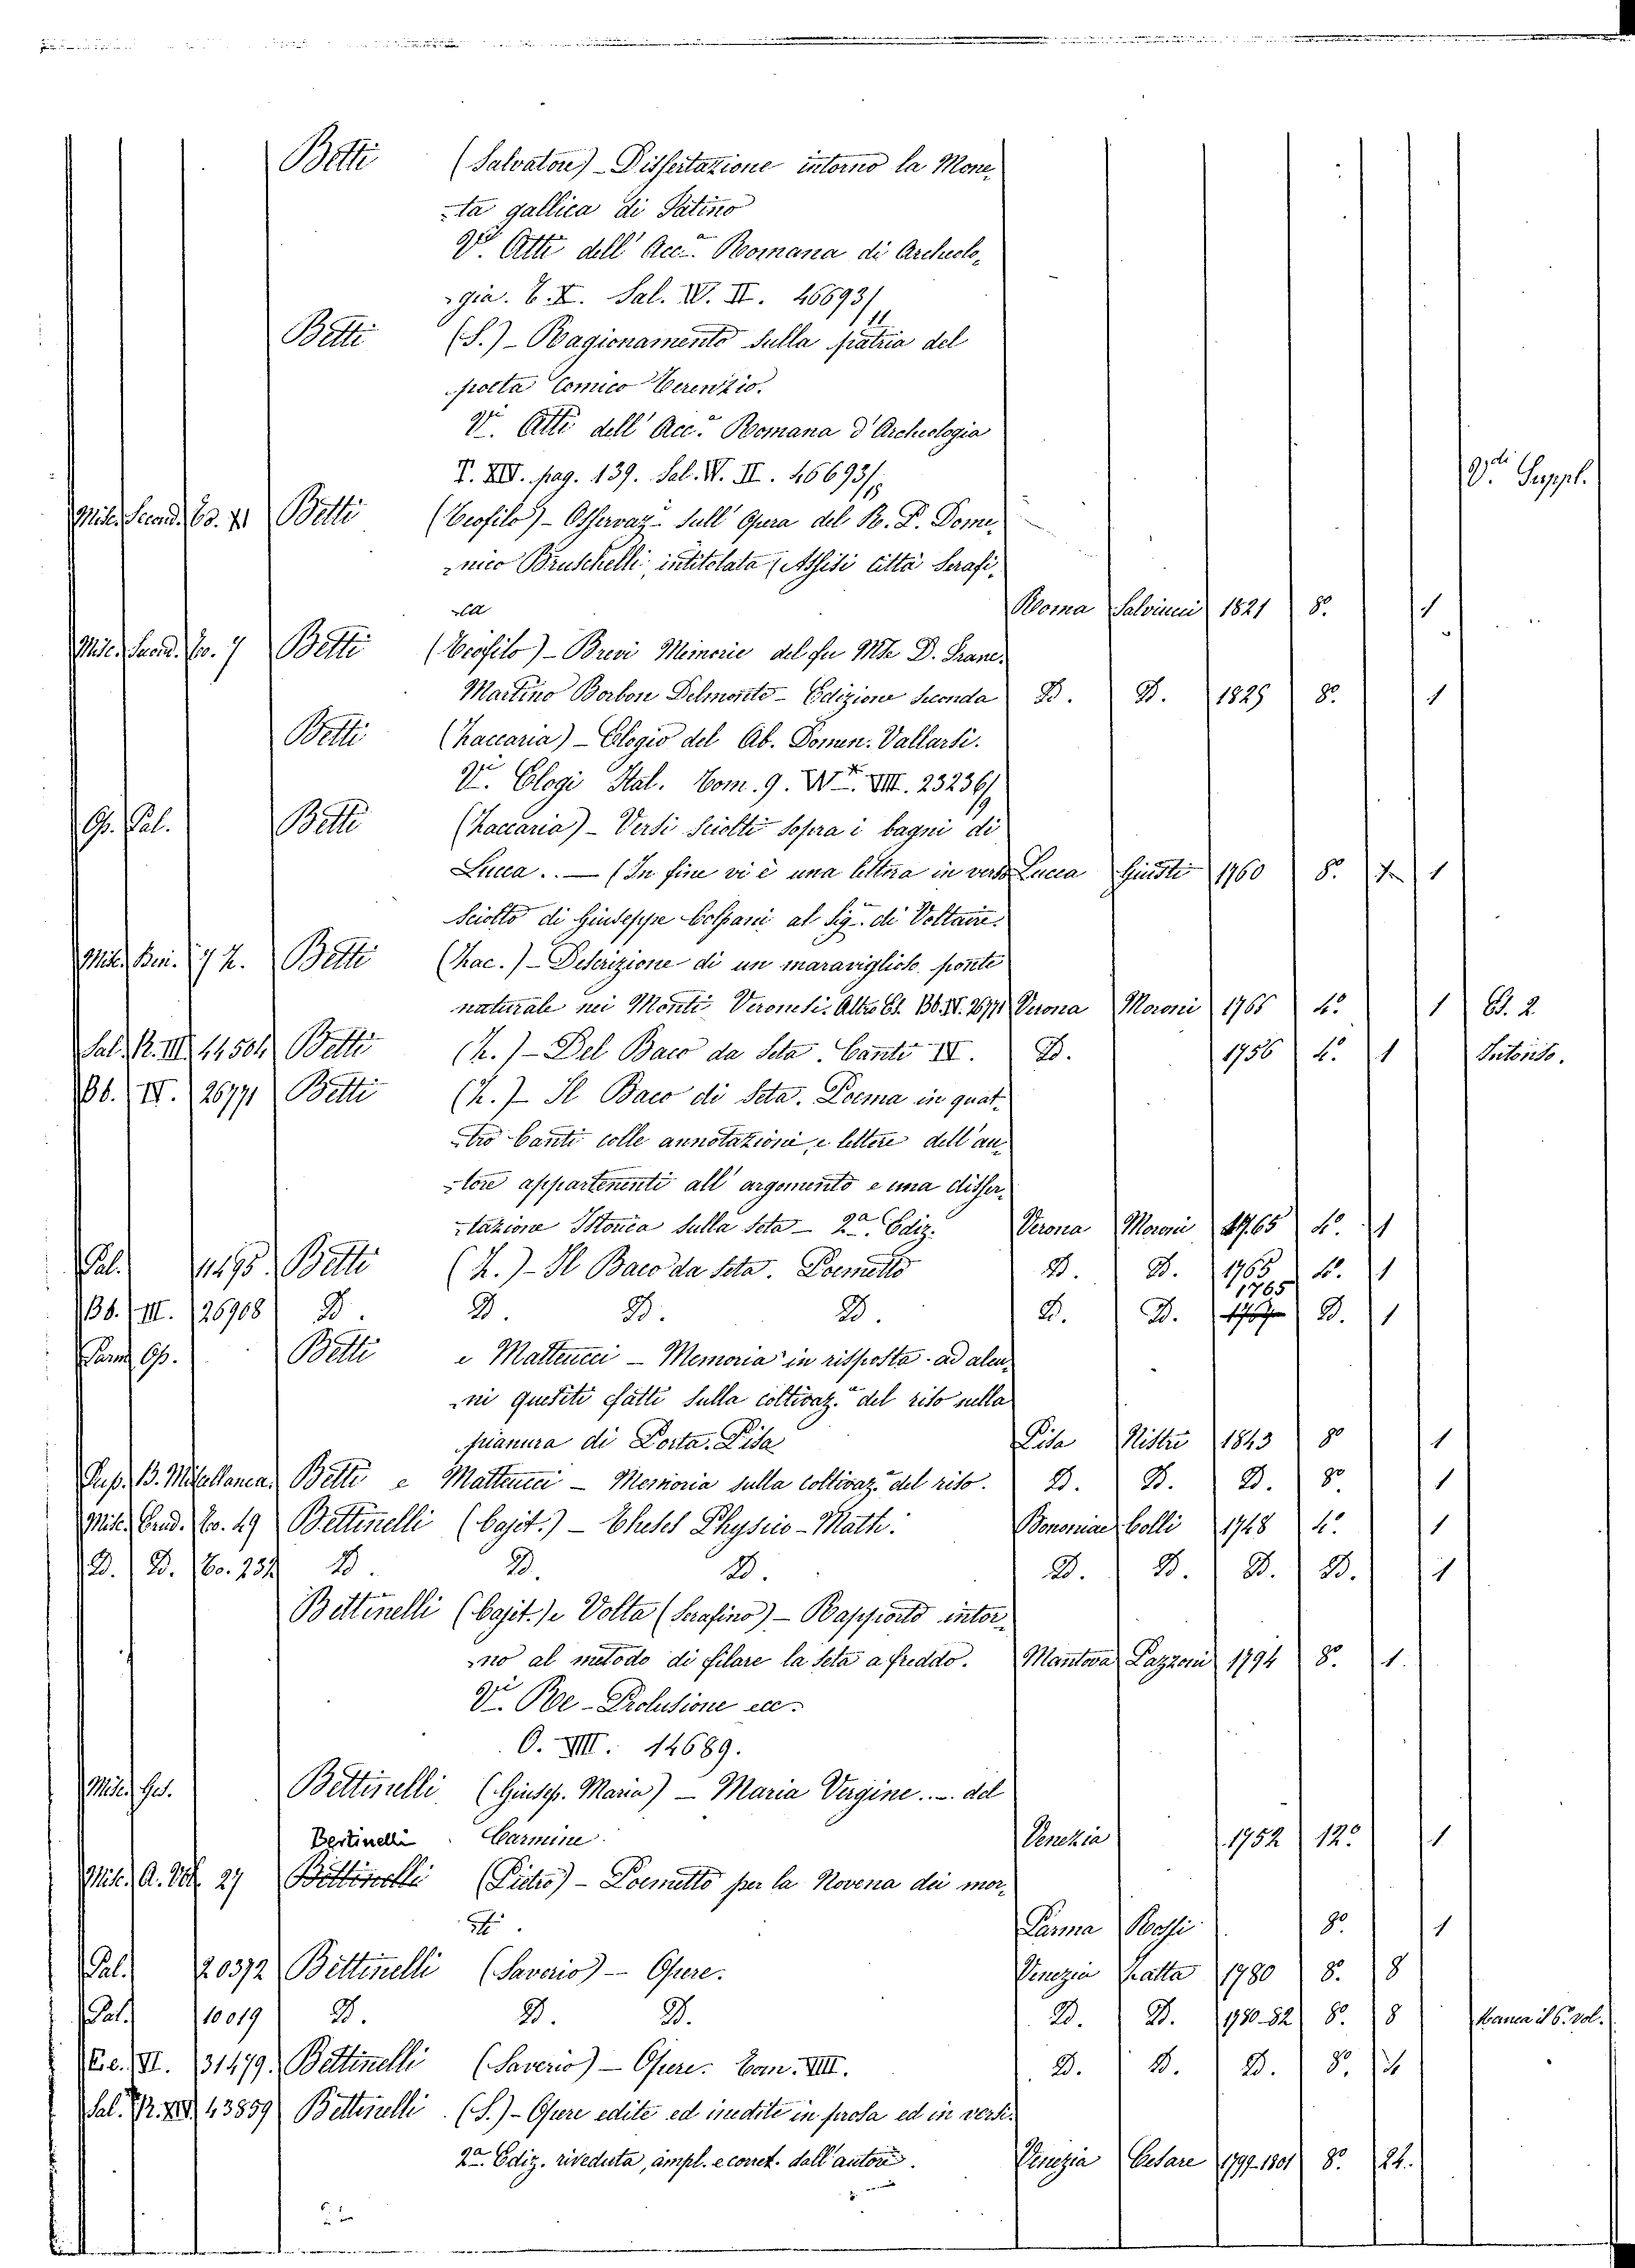 Betti (Salvatore) - Dissertazione intorno la Mone-
-ta gallica di Patino
Vi. Atti dell' Acc.a Romana di Archeolo-
-gia. T. X. Sal. W. II. 46693/11
Betti (S.) - Ragionamento sulla patria del
poeta Comico Terenzio.
Vi. Atti dell' Acc.a Romana d'Archeologia
T. XIV. pag. 139. Sal. W. II. 46693/15
V.di Suppl.
Misc. Betti (Teofilo) - Osservaz.i sull' Opera del R. P. Dome-
-nico Bruschelli, intitolata (Assisi Città Serafi-
-ca Roma Salviucci 1821 8.o 1
Misc. To. 7 Betti (Teofilo) - Brevi Memorie del fu D. Franc.
Martino Borbon Delmonte - Edizione seconda D. D. 1825 8.o 1
Betti (Zaccaria) - Elogio del Ab. Domen. Vallarsi.
Vi. Elogi Ital. Tom. 9. VIII. 23236/9
Op. Pal. Betti (Zaccaria) - Versi sciolti sopra i bagni di
Lucca.. — (In fine vi è una lettera in verso Lucca Giusti 1760 8.o 1
sciolto di Giuseppe Colpani al Sig.r di Voltaire.
Misc. 72. Betti (Zac.) - Descrizione di un maraviglioso ponte
naturale nei Monti Veronesi. Altro Es. Bb. IV. 26771 Verona Moroni 1766 4.o 1 Es. 2
Sal. R. III. 44504 Betti (Z.) - Del Baco da Seta. Canti IV. D. 1756 4.o 1 Intonso.
Bb. IV. 26771 Betti (Z.) - Il Baco di Seta. Poema in quat-
-tro Canti colle annotazioni, e lettere dell'au-
-tore appartenenti all' argomento e una disser-
-tazione Istorica sulla Seta - 2.a Ediz. Verona Moroni 1765 4.o 1
Pal. 11495 Betti (Z.) - Il Baco da Seta. Poemetto D. D. 1765 4.o 1
Bb. III. 26908 D. D. D. D. D. D. 1765 D. 1
Op. Betti e Matteucci - Memoria in risposta ad alcu-
-ni quesiti fatti sulla coltivaz.e del riso nella
pianura di Porta. Pisa Pisa Nistri 1843 8o 1
B. Miscellanea Betti e Matteucci - Memoria sulla coltivaz.e del riso. D. D. D. 8o 1
Misc. Erud. To. 49 Bettinelli (Cajet.) - Theses Physico-Math. Bononiae Colli 1748 4.o 1
D. D. To. 232 D. D. D. D. D. D. D. 1
Bettinelli (Cajet.) e Volta (Serafino) - Rapporto intor-
-no al metodo di filare la seta a freddo. Mantova Pazzoni 1794 8.o 1.
Vi. Re - Prolusione ecc.
O. VIII. 14689.
Misc. Ges. Bettinelli (Giusep. Maria) - Maria Vergine.... del
Carmine Venezia 1752 12.o 1
Bertinelli
Misc. A. 27 Bettinelli (Pietro) - Poemetto per la Novena dei mor-
-ti. Parma Rossi 8.o 1
Pal. 20372 Bettinelli (Saverio) - Opere. Venezia Zatta 1780 8.o 8
Pal. 10019 D. D. D. D. D. 1780-82 8.o 8 Manca il 6.o vol.
E.e. VI. 31479. Bettinelli (Saverio) - Opere. Tom. VIII. D. D. D. 8.o
Sal. R. XIV. 43859 Bettinelli (S.) - Opere edite ed inedite in prosa ed in versi.
2.a Ediz. riveduta, ampl. e corret. dall'autore. Venezia Cesare 1799-1801 8.o 24.